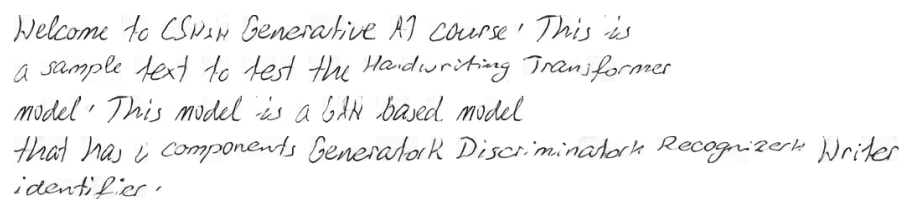 Welcome to Generative AI course. This is
a sample text to test the Handwriting Transformer
model. This model is a GAN based model
that has components Generatork Discriminatork Recognizerk Writer
identifier.